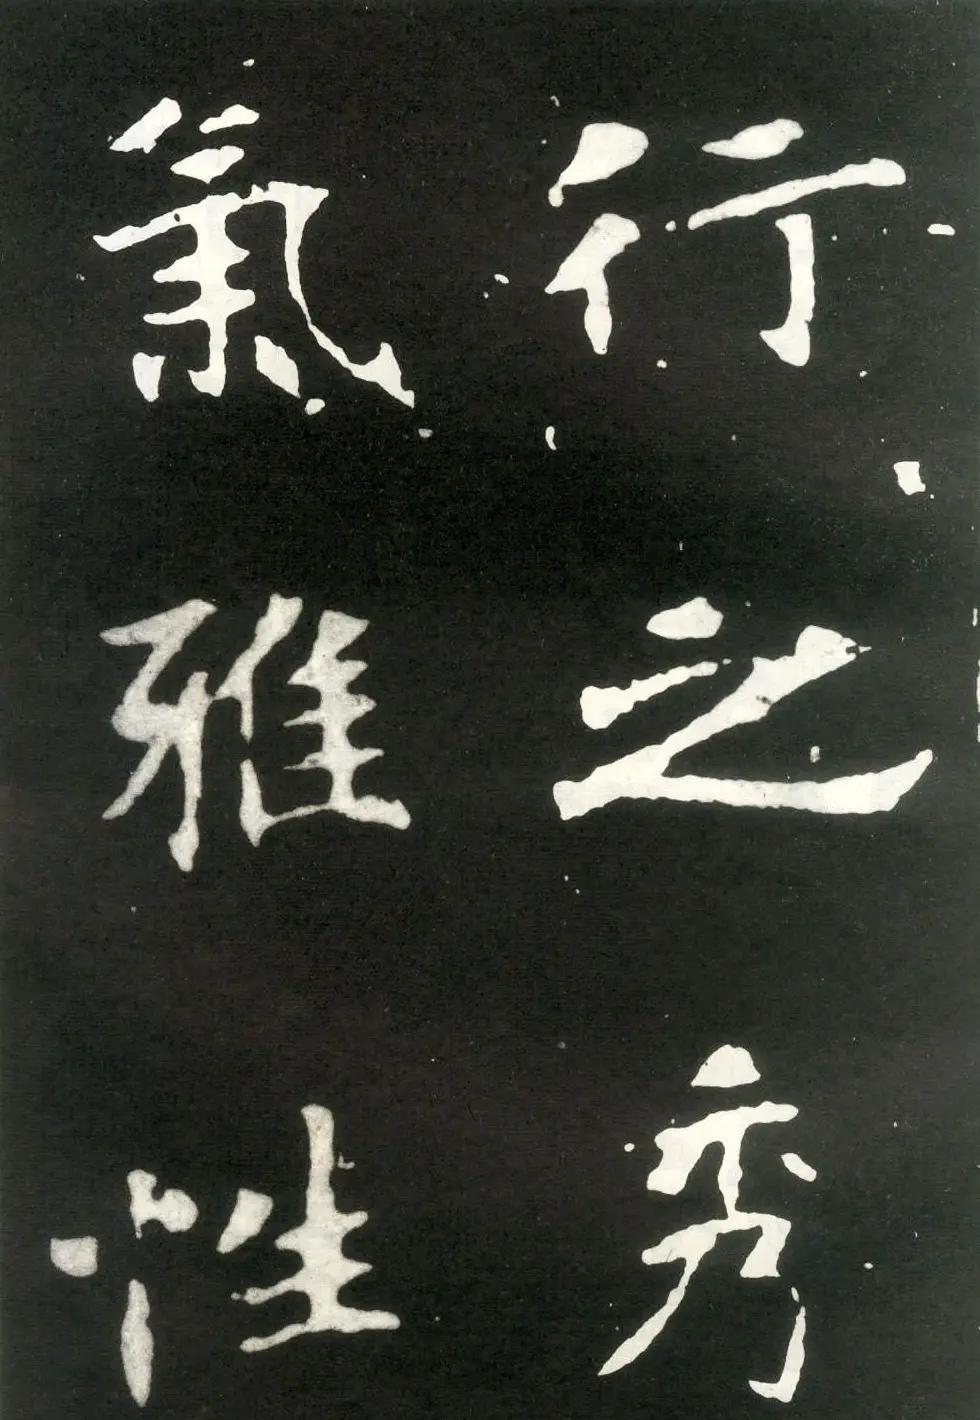 行之秀
氣雅性